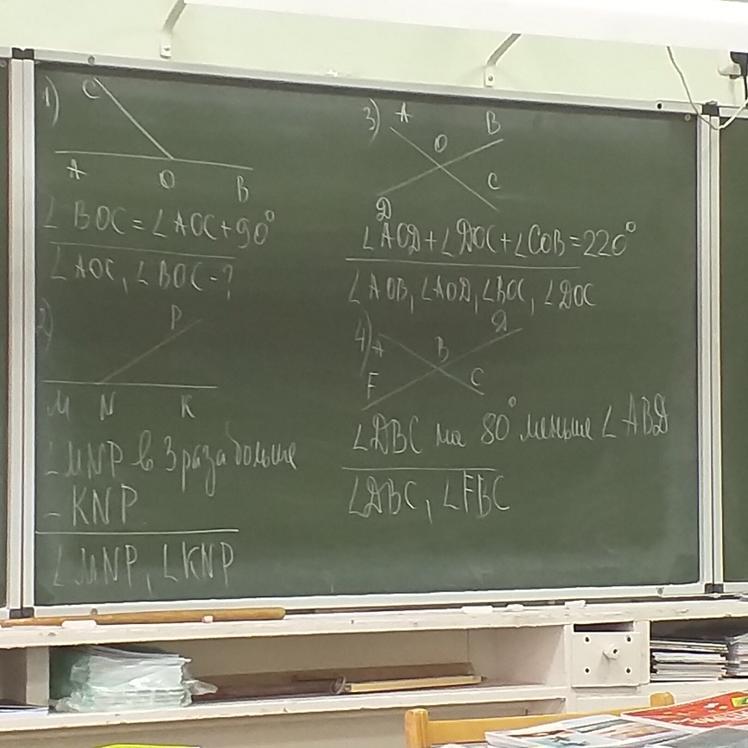 1)
C
A O B
∠BOC = ∠AOC + 90°
∠AOC, ∠BOC - ?
2)
P
M N K
∠MNP в 3 раза больше
∠KNP
∠MNP, ∠KNP
3) A B
O
C
D
∠AOD + ∠DOC + ∠COB = 220°
∠AOB, ∠AOD, ∠BOC, ∠DOC
4) A B D
F C
∠DBC на 80° меньше ∠ABD
∠DBC, ∠FBC